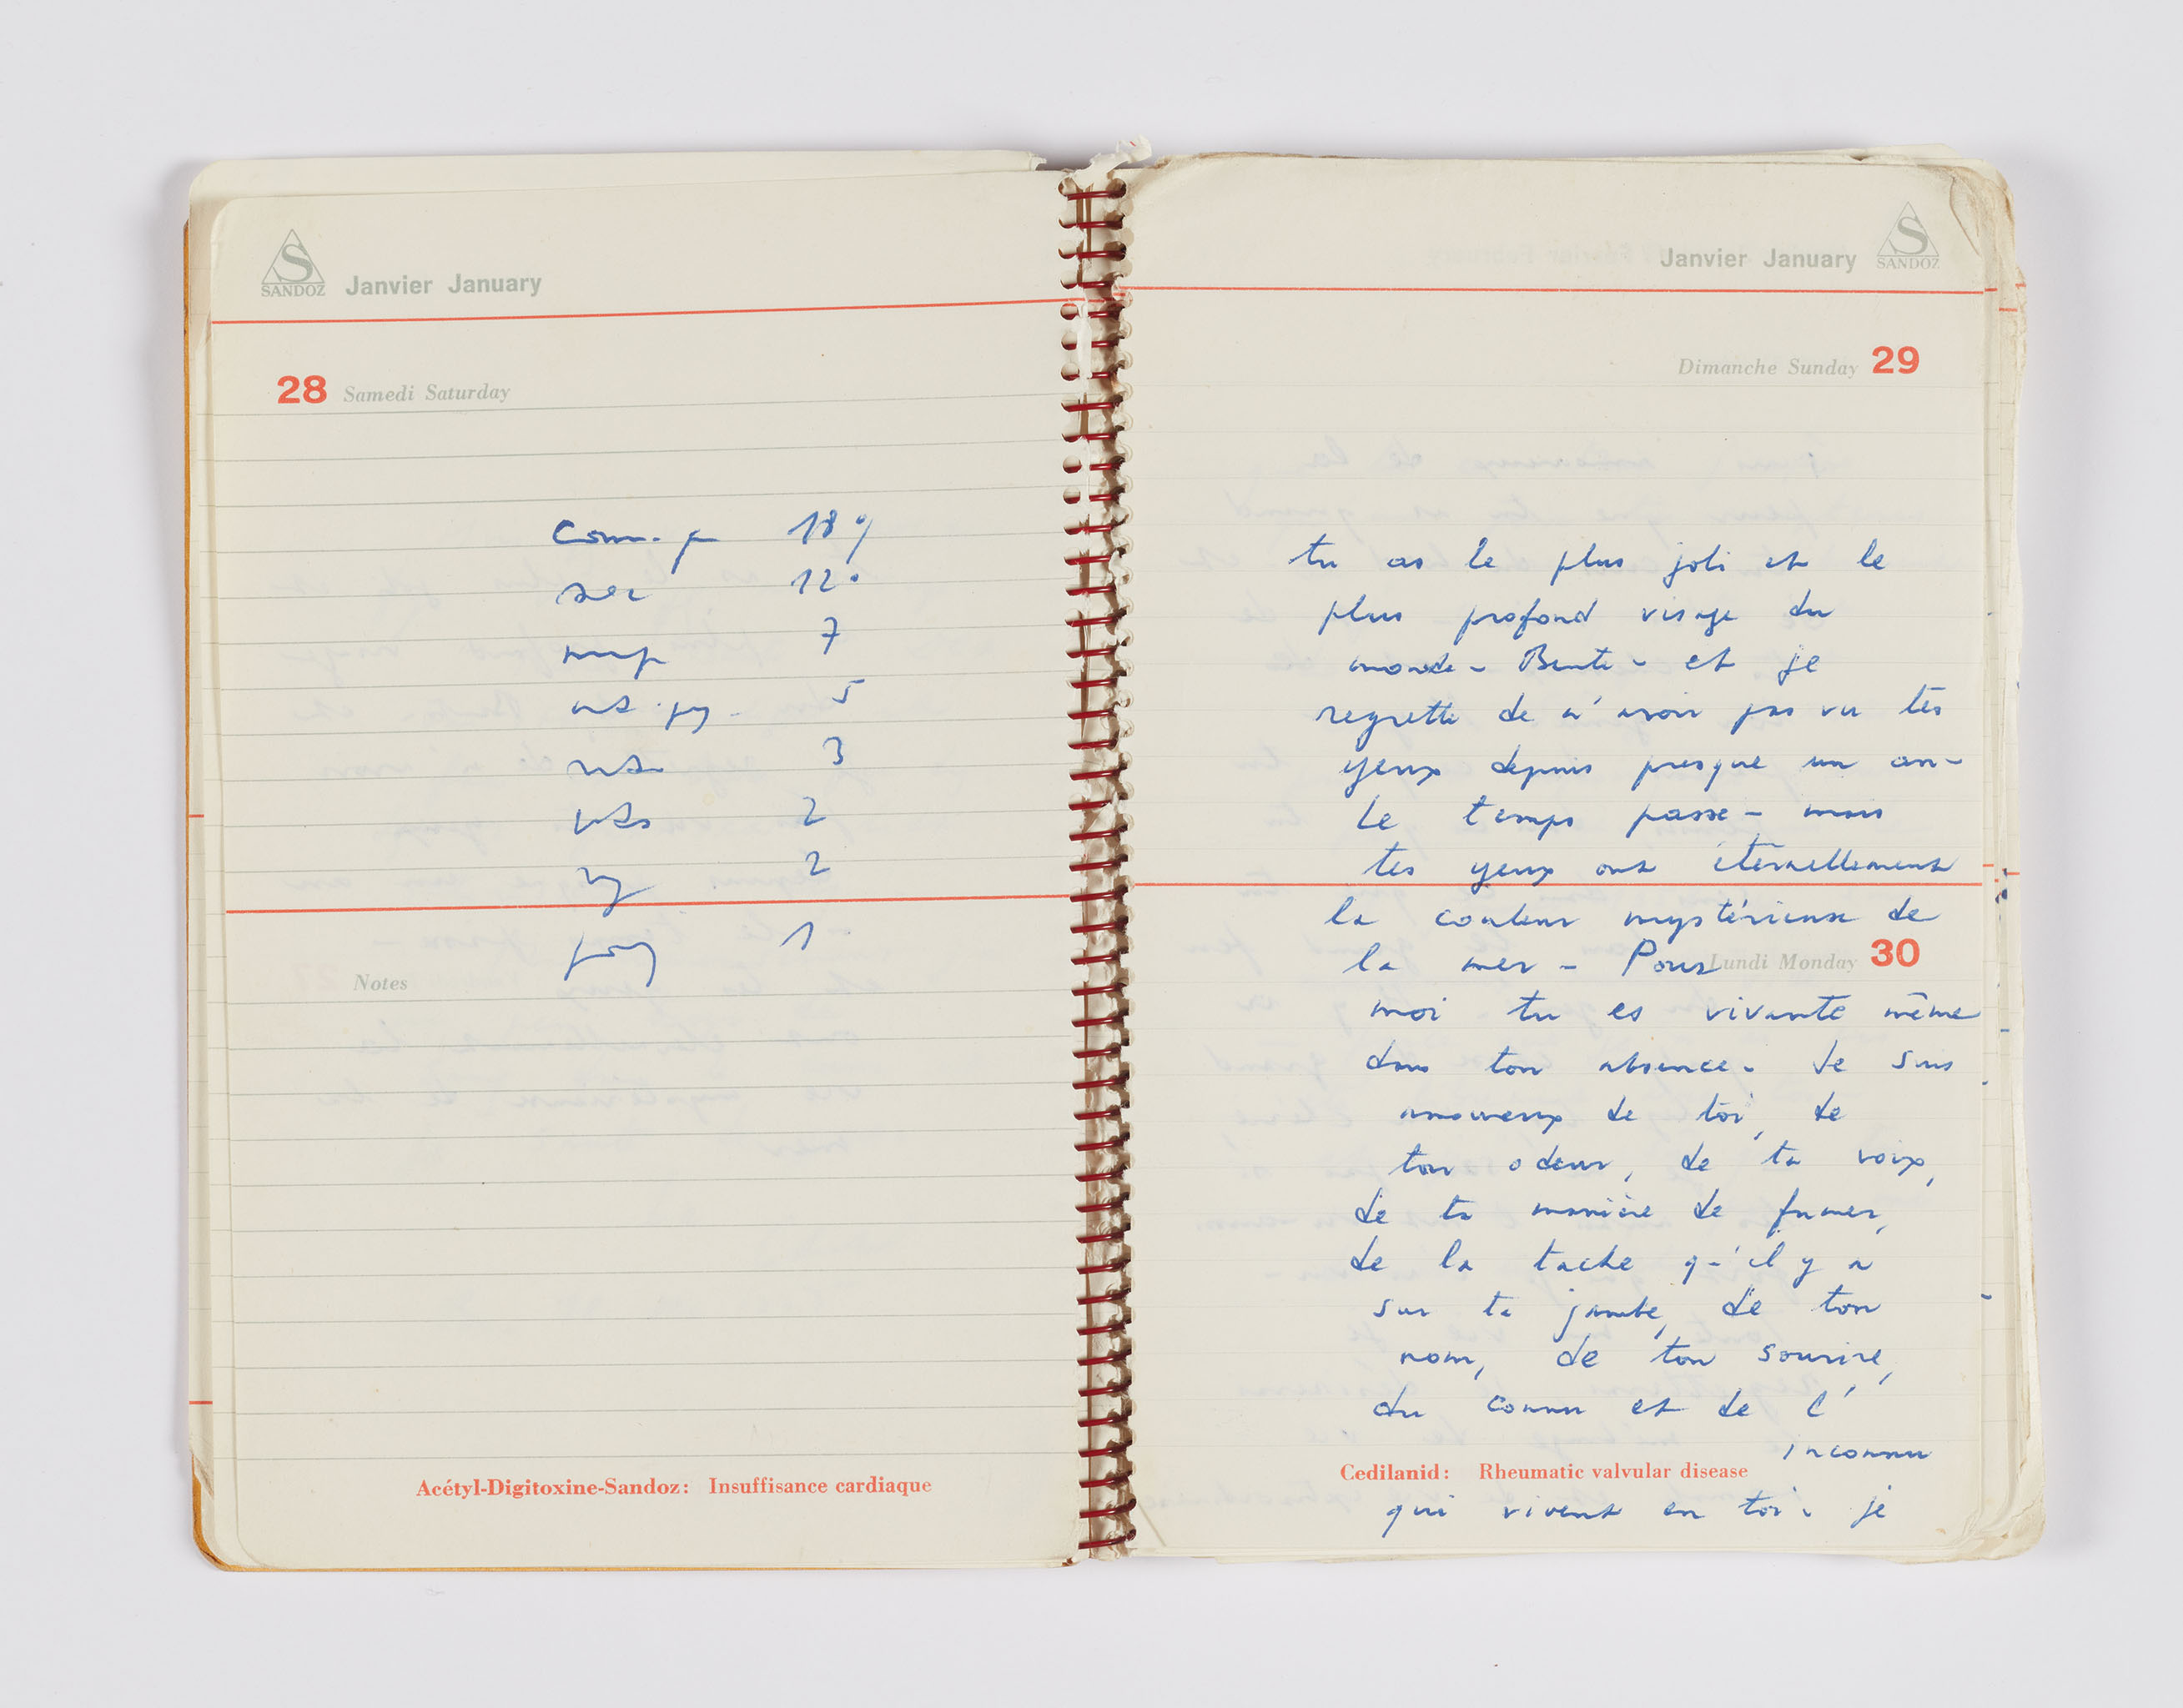 SANDOZ Janvier January
28 Samedi Saturday
18
12
7
5
3
2
2
1
Notes
Acétyl-Digitoxine-Sandoz: Insuffisance cardiaque
Janvier January SANDOZ
Dimanche Sunday 29
tu as le plus joli et le
plus profond visage du
monde - Bente - et je
regrette de n'avoir pas vu tes
yeux depuis presque un an -
Le temps passe - mais
tes yeux ont éternellement
la couleur mystérieuse de
la mer - Pour
Lundi Monday 30
moi tu es vivante même
dans ton absence - Je suis
amoureux de toi, de
ton odeur, de ta voix,
de ta manière de fumer,
de la tache qu'il y a
sur ta jambe, de ton
nom, de ton sourire,
du connu et de l'
inconnu
Cedilanid: Rheumatic valvular disease
qui vivent en toi - je